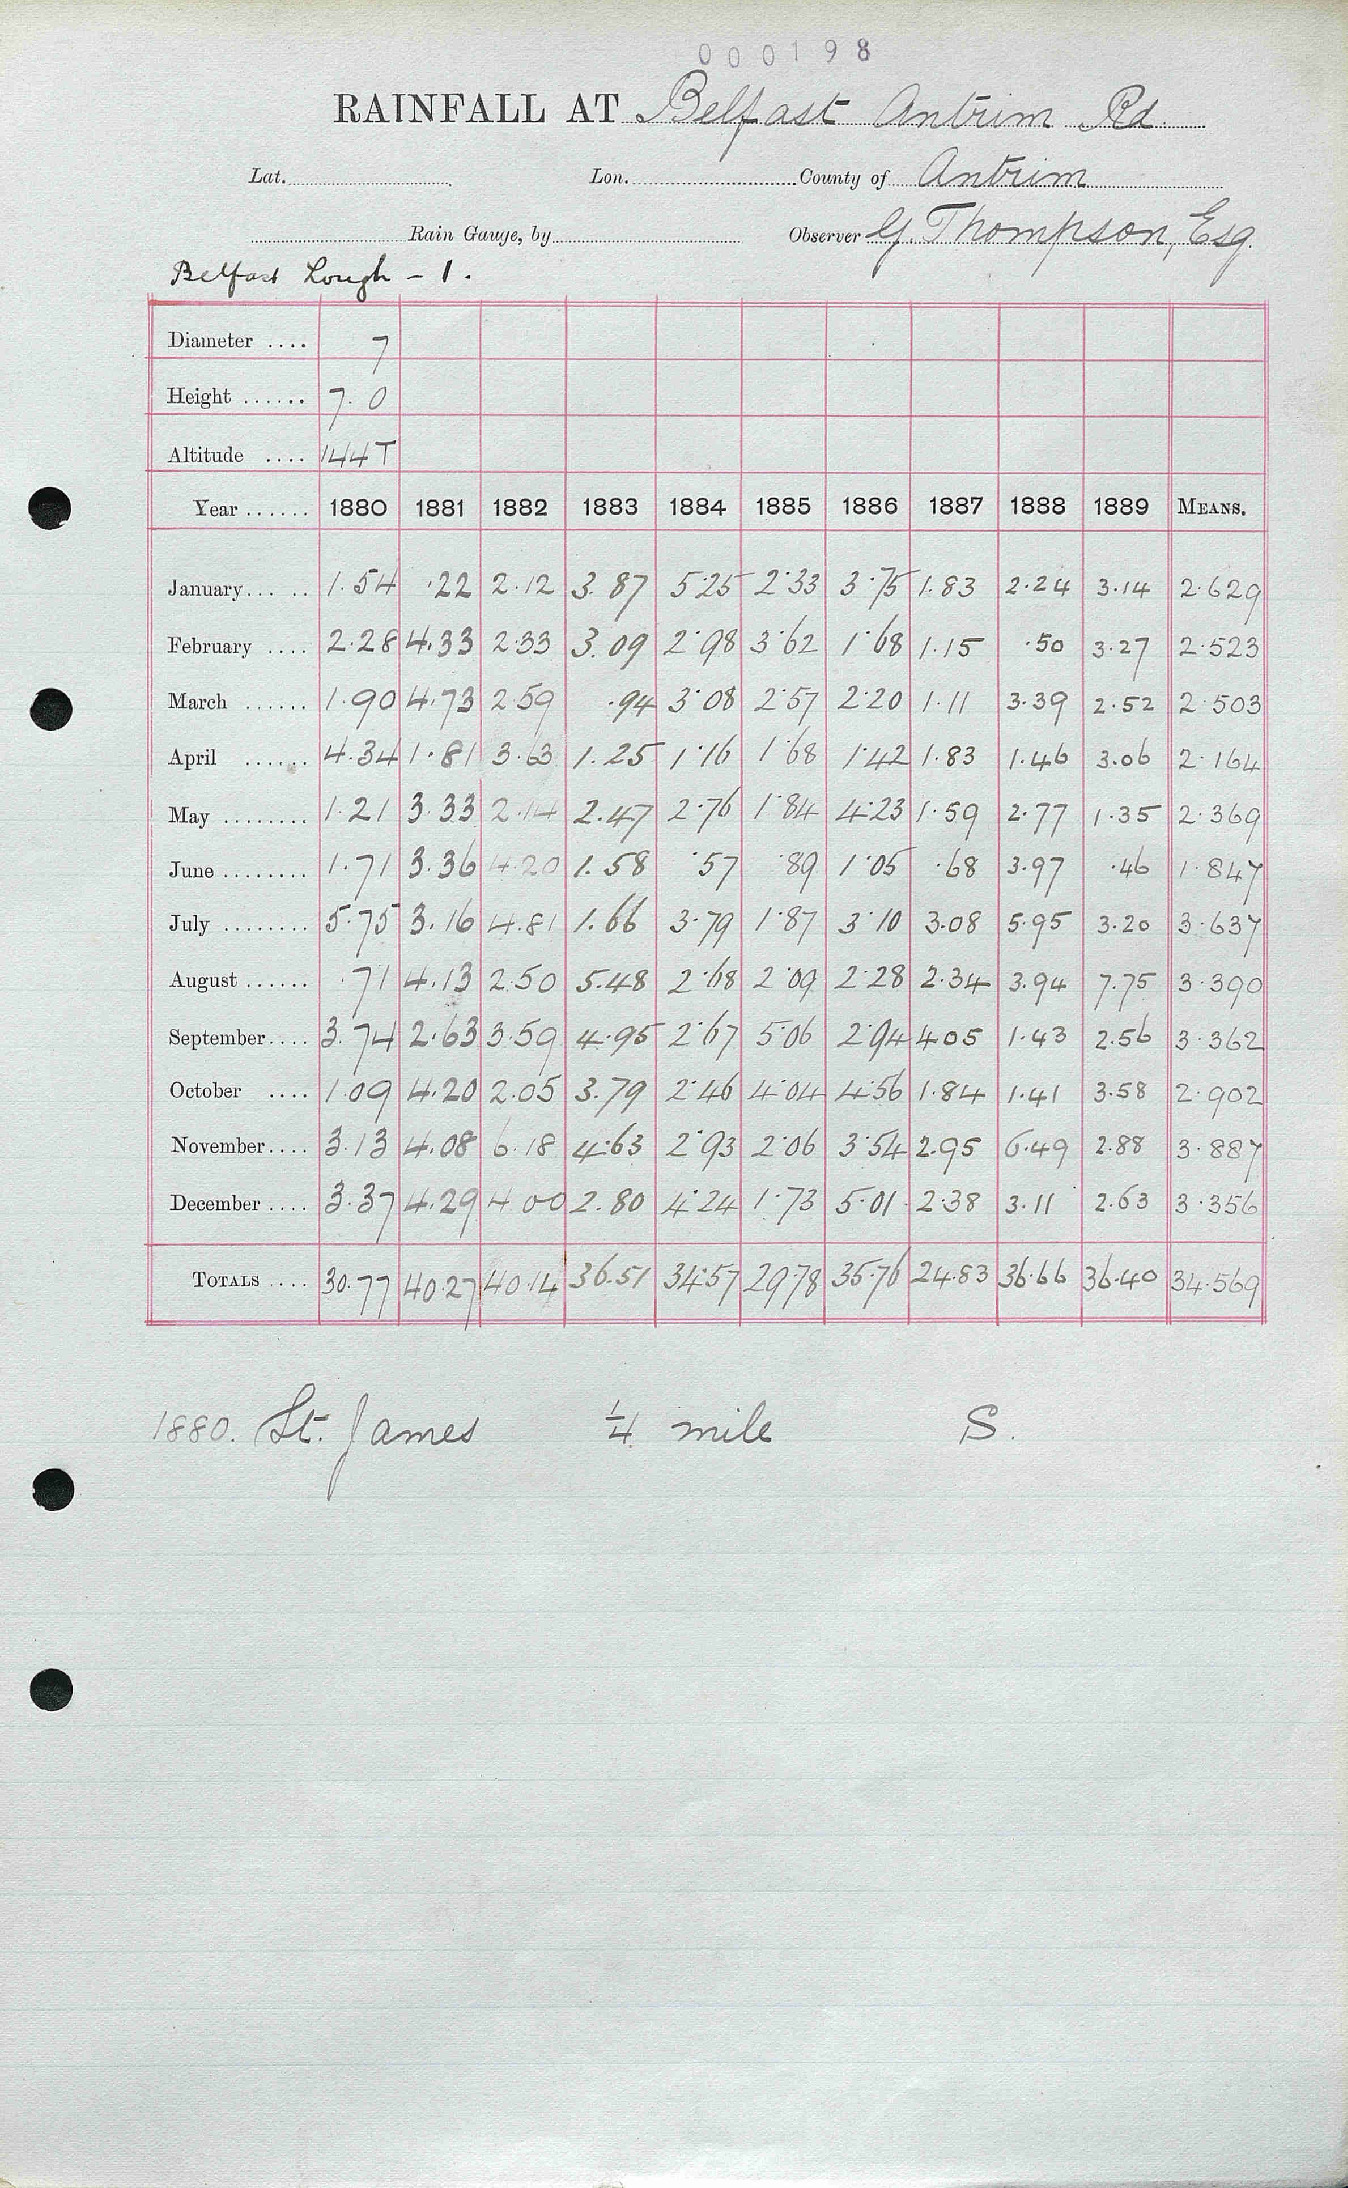 000198
RAINFALL AT Belfast Antrim Rd.
Lat. Lon. County of Antrim
Rain Gauge, by Observer G. Thompson, Esq.
Belfast Lough - 1.
Diameter .... 7
Height ...... 7.0
Altitude .... 144T
Year ...... 1880 1881 1882 1883 1884 1885 1886 1887 1888 1889 MEANS.
January... .. 1.54 .22 2.12 3.87 5.25 2.33 3.75 1.83 2.24 3.14 2.629
February .... 2.28 4.33 2.33 3.09 2.98 3.62 1.68 1.15 .50 3.27 2.523
March ...... 1.90 4.73 2.59 .94 3.08 2.57 2.20 1.11 3.39 2.52 2.503
April ...... 4.34 1.81 3.63 1.25 1.16 1.68 1.42 1.83 1.46 3.06 2.164
May ........ 1.21 3.33 2.14 2.47 2.76 1.84 4.23 1.59 2.77 1.35 2.369
June ........ 1.71 3.36 4.20 1.58 .57 .89 1.05 .68 3.97 .46 1.847
July ........ 5.75 3.16 4.81 1.66 3.79 1.87 3.10 3.08 5.95 3.20 3.637
August ...... .71 4.13 2.50 5.48 2.68 2.09 2.28 2.34 3.94 7.75 3.390
September.... 3.74 2.63 3.59 4.95 2.67 5.06 2.94 4.05 1.43 2.56 3.362
October .... 1.09 4.20 2.05 3.79 2.46 4.04 4.56 1.84 1.41 3.58 2.902
November.... 3.13 4.08 6.18 4.63 2.93 2.06 3.54 2.95 6.49 2.88 3.887
December .... 3.37 4.29 4.00 2.80 4.24 1.73 5.01 2.38 3.11 2.63 3.356
TOTALS .... 30.77 40.27 40.14 36.51 34.57 29.78 35.76 24.83 36.66 36.40 34.569
1880. St. James ¼ mile S.